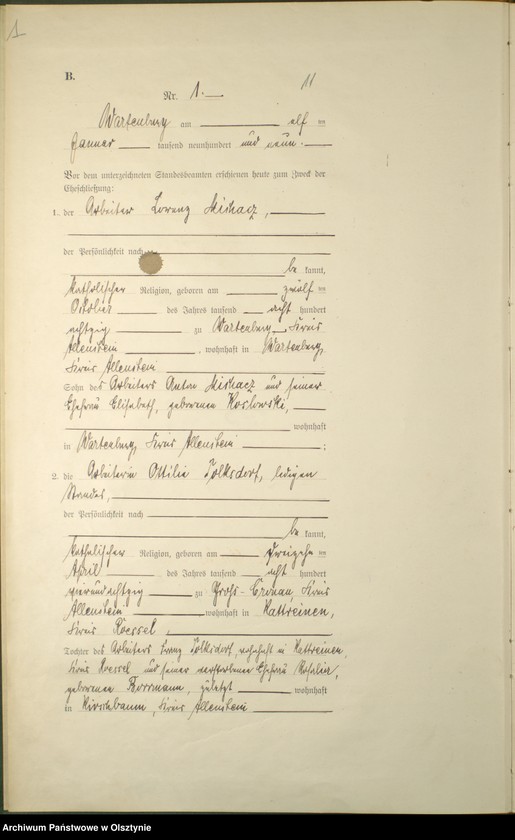 1
B.
11
Nr. 1.
Wartenburg am elf ten
Januar tausend neunhundert und neun.
Vor dem unterzeichneten Standesbeamten erschienen heute zum Zweck der
Eheschließung:
1. der Arbeiter Lorenz Michacz,
der Persönlichkeit nach
be kannt,
katholischer Religion, geboren am zwölf ten
Oktober des Jahres tausend acht hundert
achtzig zu Wartenburg, Kreis
Allenstein, wohnhaft in Wartenburg,
Kreis Allenstein
Sohn des Arbeiters Anton Michacz und seiner
Ehefrau Elisabeth, geborenen Koslowski,
wohnhaft
in Wartenburg, Kreis Allenstein;
2. die Arbeiterin Ottilie Tolksdorf, ledigen
Standes,
der Persönlichkeit nach
be kannt,
katholischer Religion, geboren am dreizehn ten
April des Jahres tausend acht hundert
vierundachtzig zu Groß-Cronau, Kreis
Allenstein wohnhaft in Kattreinen,
Kreis Roessel,
Tochter des Arbeiters Franz Tolksdorf, wohnhaft in Kattreinen,
Kreis Roessel und seiner verstorbenen Ehefrau Rosalie,
geborenen Herrmann, zuletzt wohnhaft
in Kirschbaum, Kreis Allenstein
Archiwum Państwowe w Olsztynie